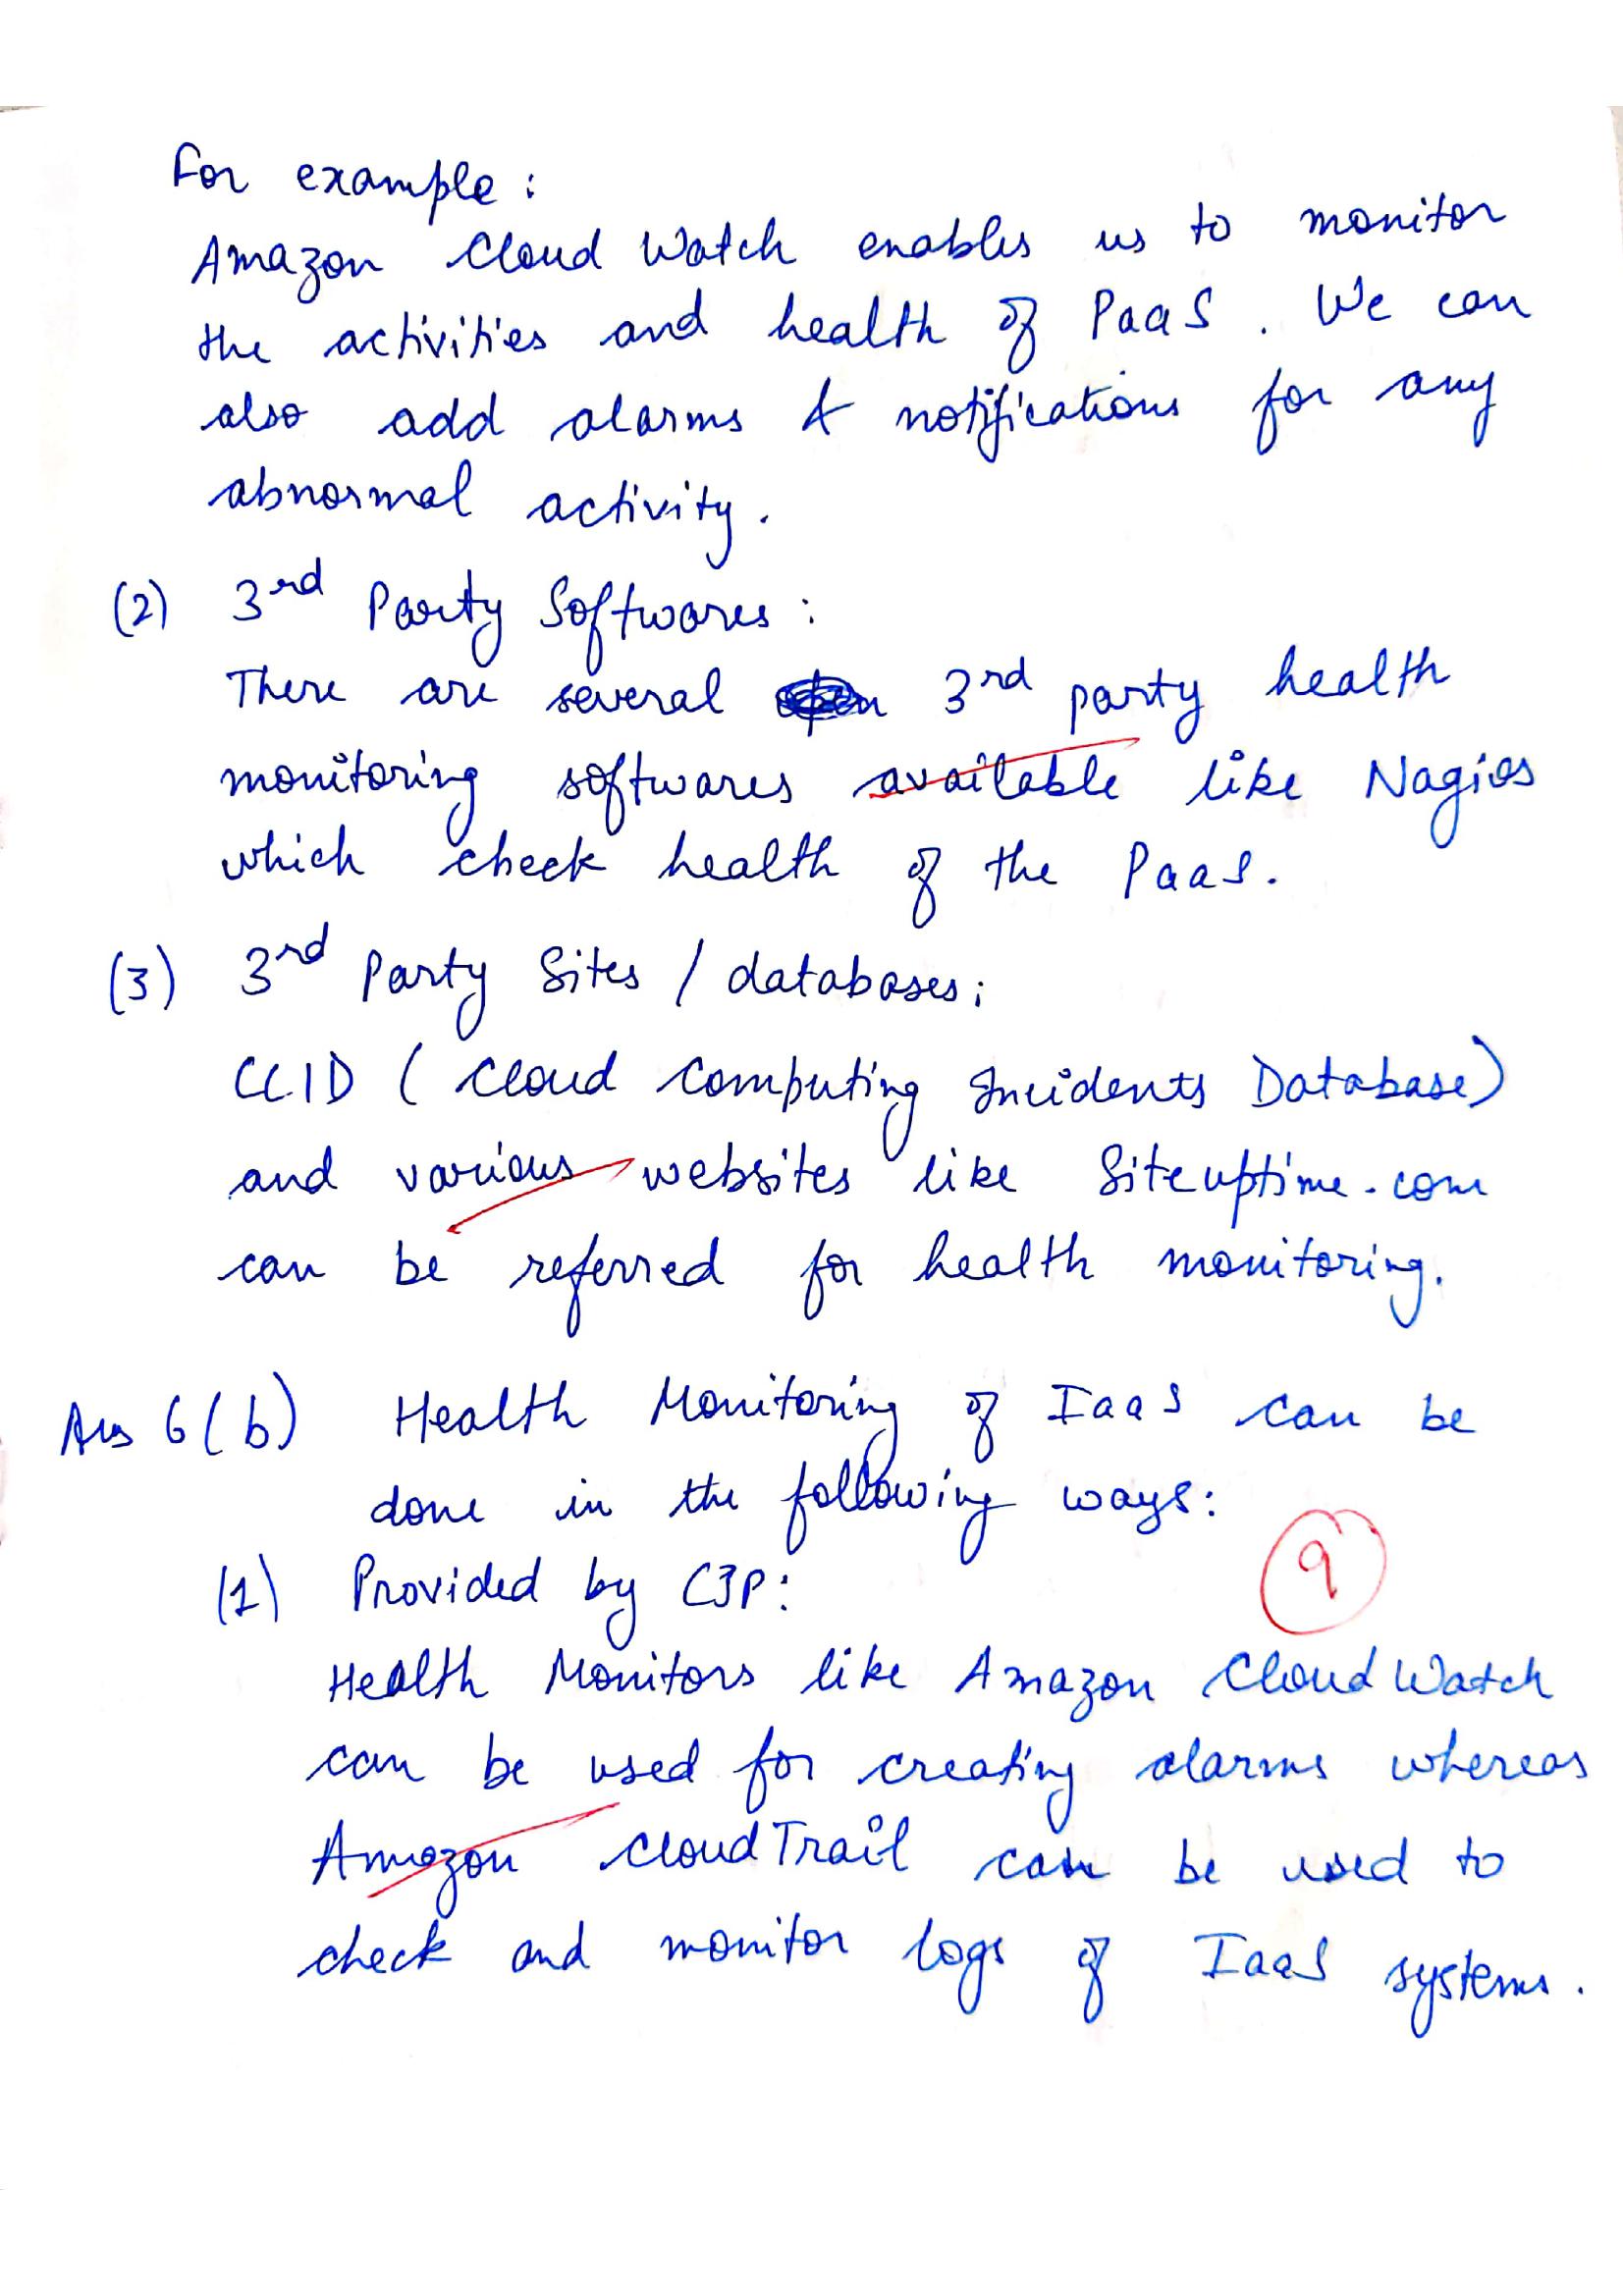 For example :
Amazon Cloud Watch enables us to monitor
the activities and health of PaaS. We can
also add alarms & notifications for any
abnormal activity.
(2) 3rd Party Softwares :
There are several 3rd party health
monitoring softwares available like Nagios
which check health of the PaaS.
(3) 3rd Party Sites / databases:
CCID ( Cloud Computing Incidents Database)
and various websites like Siteuptime.com
can be referred for health monitoring.
Ans 6(b) Health Monitoring of IaaS can be
done in the following ways:
9
(1) Provided by CSP:
Health Monitors like Amazon CloudWatch
can be used for creating alarms whereas
Amazon CloudTrail can be used to
check and monitor logs of IaaS systems.